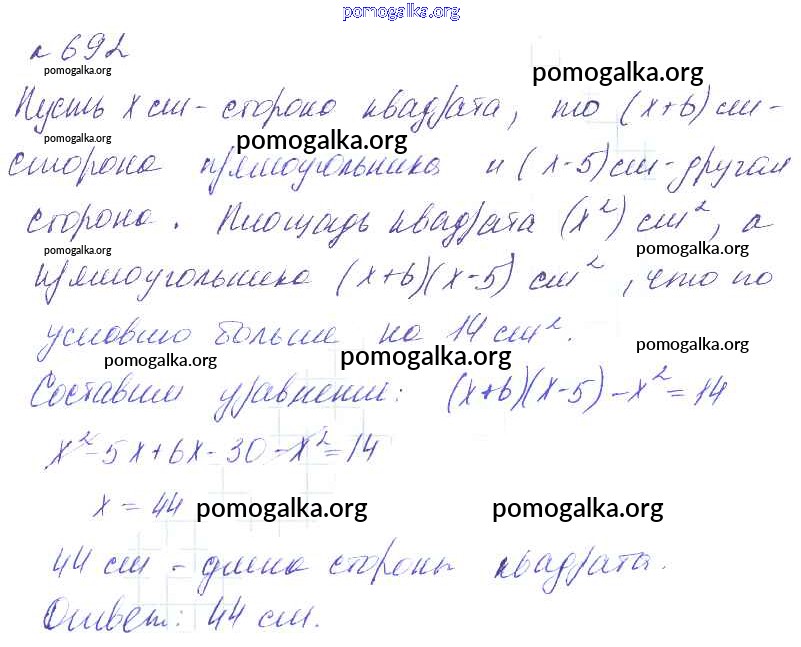 pomogalka.org
№ 692
pomogalka.org pomogalka.org
Пусть x см - сторона квадрата, то (x+6) см -
pomogalka.org pomogalka.org
сторона прямоугольника и (x-5) см - другая
сторона. Площадь квадрата (x²) см², а
pomogalka.org pomogalka.org
прямоугольника (x+6)(x-5) см², что по
условию больше на 14 см².
pomogalka.org pomogalka.org pomogalka.org
Составим уравнение: (x+6)(x-5)-x²=14
x²-5x+6x-30-x²=14
x = 44 pomogalka.org pomogalka.org
44 см - длина стороны квадрата.
Ответ: 44 см.